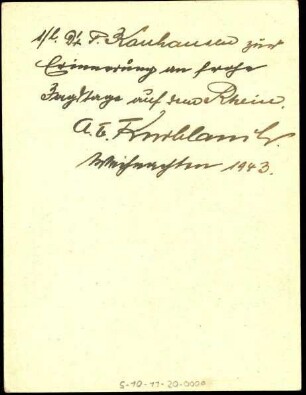 s/l. Dr. F. Kauhausen zur
Erinnerung an frohe
Jagdtage auf dem Rhein.
A. v. Knoblauch.
Weihnachten 1943.
5-10-11-20-0000